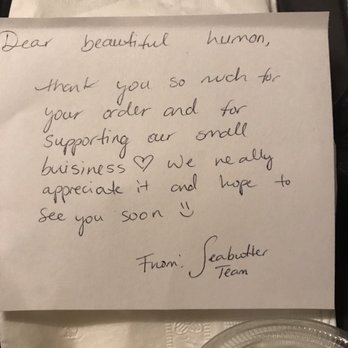 Dear beautiful human,
thank you so much for
your order and for
supporting our small
buisiness ♡ We really
appreciate it and hope to
see you soon :)
From: Seabutter
Team